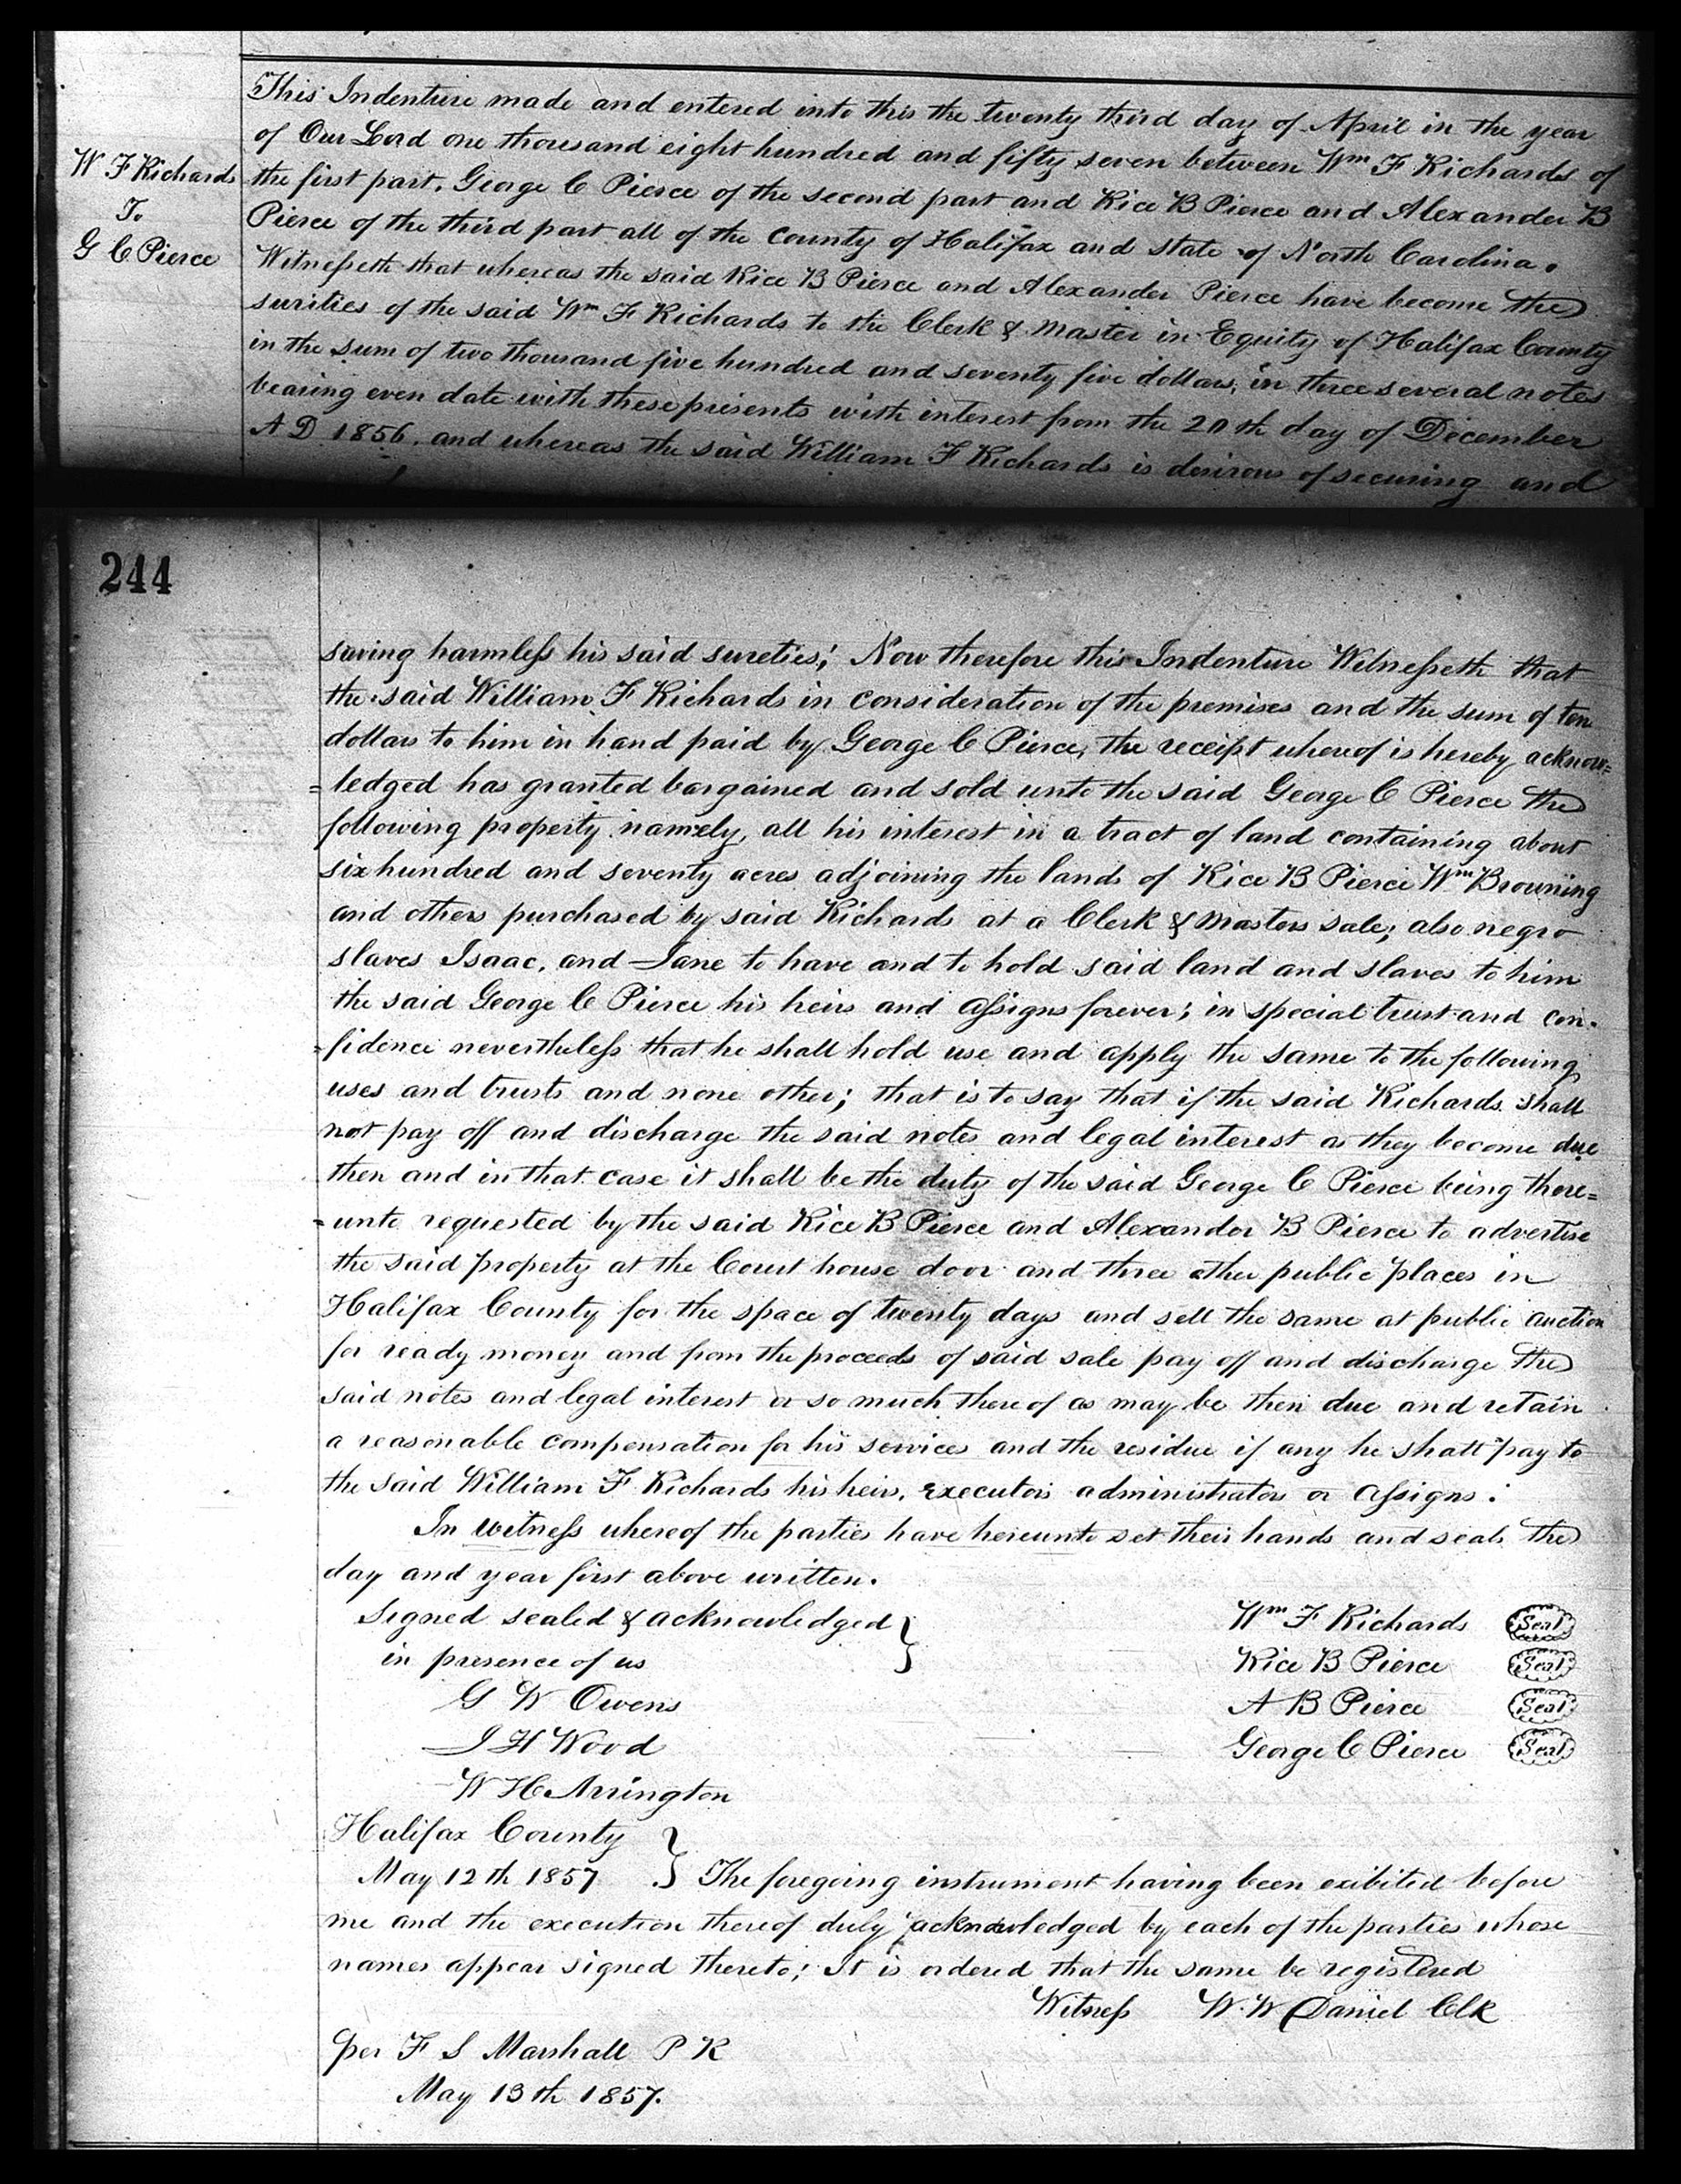 W F Richards
To
G C Pierce
This Indenture made and entered into this the twenty third day of April in the year
of Our Lord one thousand eight hundred and fifty seven between Wm F Richards of
the first part, George C Pierce of the second part and Rice B Pierce and Alexander B
Pierce of the third part all of the County of Halifax and State of North Carolina.
Witnesseth that whereas the said Rice B Pierce and Alexander Pierce have become the
surities of the said Wm F Richards to the Clerk & Master in Equity of Halifax County
in the sum of two thousand five hundred and seventy five dollars, in three several notes
bearing even date with these presents with interest from the 20th day of December
A D 1856. and whereas the said William F Richards is desirous of securing and
244
saving harmless his said sureties; Now therefore this Indenture Witnesseth that
the said William F Richards in consideration of the premises and the sum of ten
dollars to him in hand paid by George C Pierce, the receipt whereof is hereby acknow=
=ledged has granted bargained and sold unto the said George C Pierce the
following property namely, all his interest in a tract of land containing about
six hundred and seventy acres adjoining the lands of Rice B Pierce Wm Browning
and others purchased by said Richards at a Clerk & Masters sale; also negro
slaves Isaac, and Jane to have and to hold said land and slaves to him
the said George C Pierce his heirs and assigns forever; in special trust and con-
-fidence nevertheless that he shall hold use and apply the same to the following
uses and trusts and none other; that is to say that if the said Richards shall
not pay off and discharge the said notes and legal interest as they become due
then and in that case it shall be the duty of the said George C Pierce being there=
=unto requested by the said Rice B Pierce and Alexander B Pierce to advertise
the said property at the Court house door and three other public places in
Halifax County for the space of twenty days and sell the same at public auction
for ready money and from the proceeds of said sale pay off and discharge the
said notes and legal interest or so much thereof as may be then due and retain
a reasonable compensation for his services and the residue if any he shall pay to
the said William F Richards his heirs, executors administrators or assigns.
In witness whereof the parties have hereunto set their hands and seals the
day and year first above written.
Signed sealed & acknowledged } Wm F Richards Seal
in presence of us Rice B Pierce Seal
G W Owens A B Pierce Seal
J H Wood George C Pierce Seal
W H Arrington
Halifax County }
May 12th 1857 } The foregoing instrument having been exibited before
me and the execution thereof duly acknowledged by each of the parties whose
names appear signed thereto; It is ordered that the same be registered
Witness W. W Daniel Clk
per F S Marshall P R
May 13th 1857.